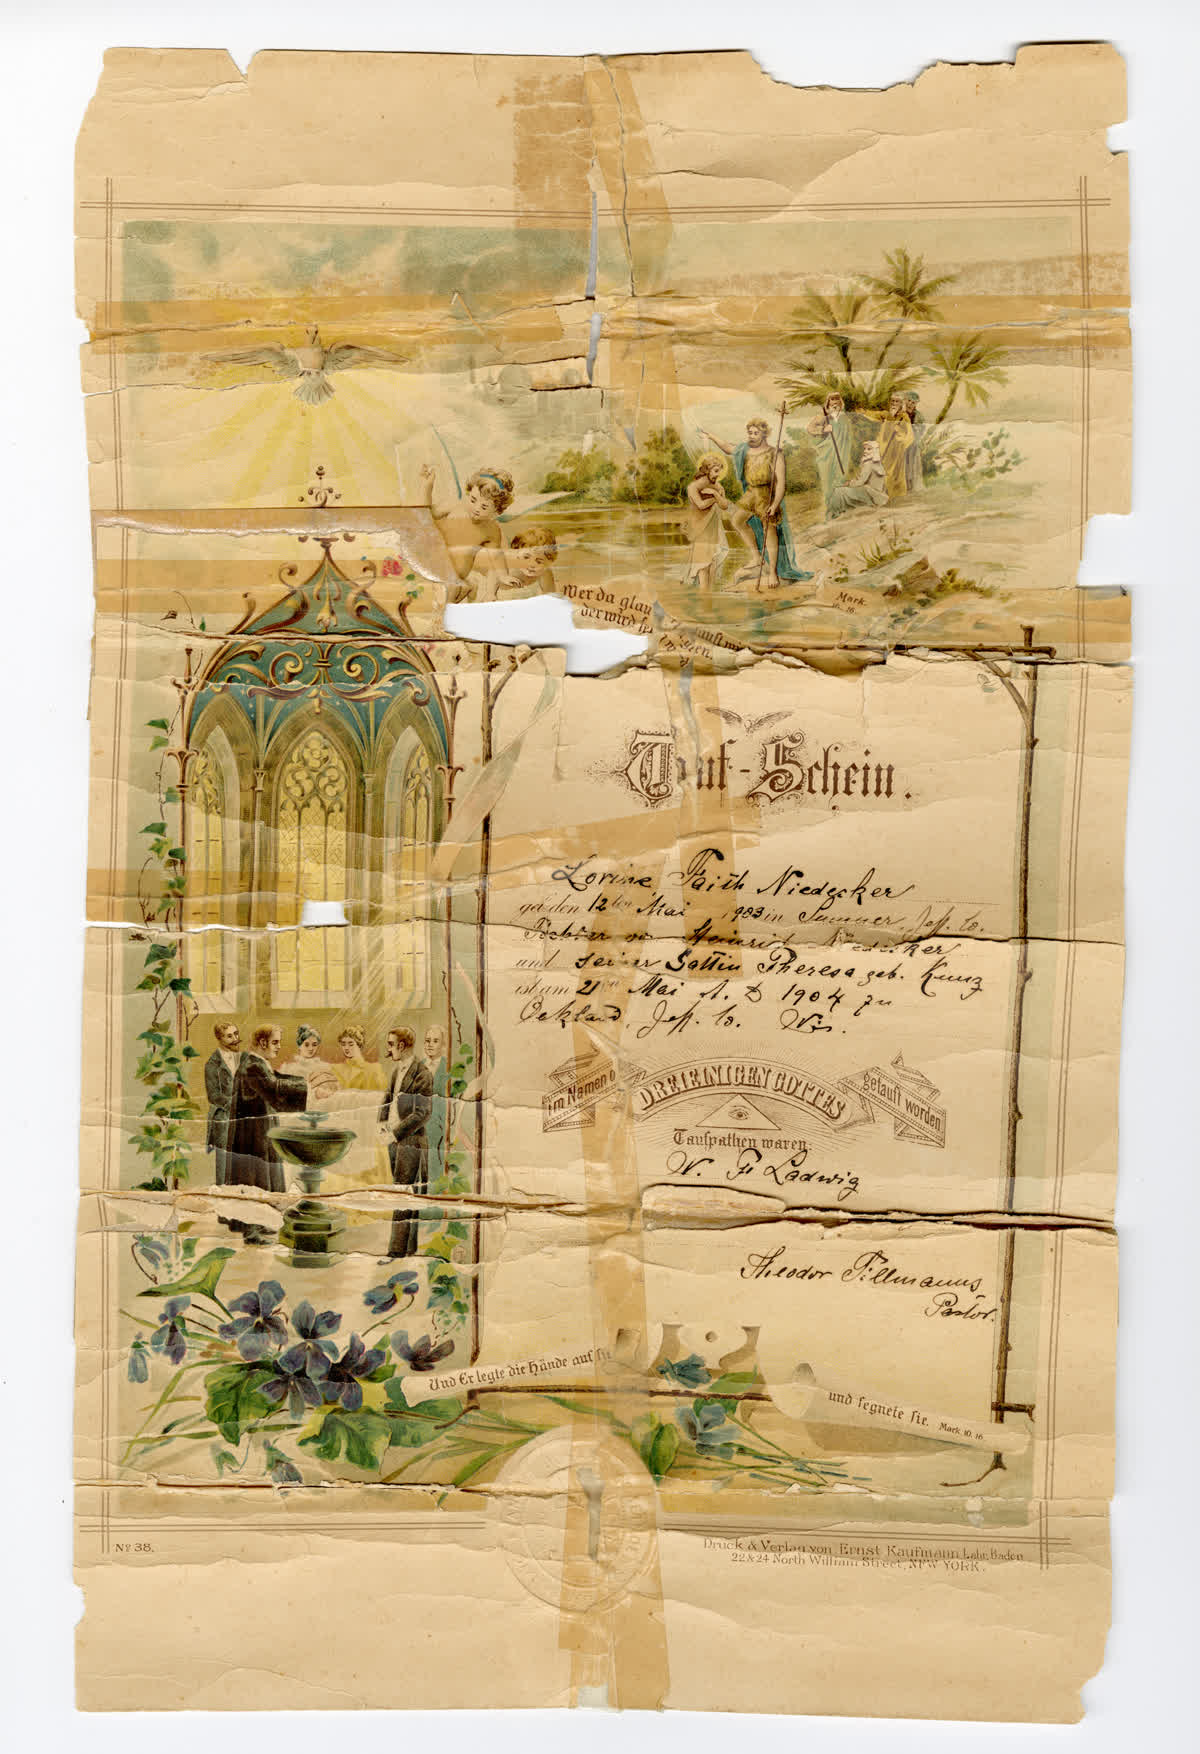 Wer da glau
auft wi
der wird se
Mark.
16. 16.
Tauf-Schein.
Lorine Faith Niedecker
geb. den 12ten Mai 1903 in Sumner, Jeff. Co.
Tochter von Heinrich Niedecker
und seiner Gattin Theresa geb. Kunz
ist am 21ten Mai A. D 1904 zu
Oakland, Jeff. Co. Wis.
im Namen d
DREIEINIGEN GOTTES
getauft worden
Taufpathen waren:
W. F Ladwig
Theodor Tillmanns
Pastor.
Und Er legte die Hände auf sie
und segnete sie. Mark. 10. 16.
No 38.
Druck & Verlag von Ernst Kaufmann Lahr, Baden
22 & 24 North William Street, NEW YORK.